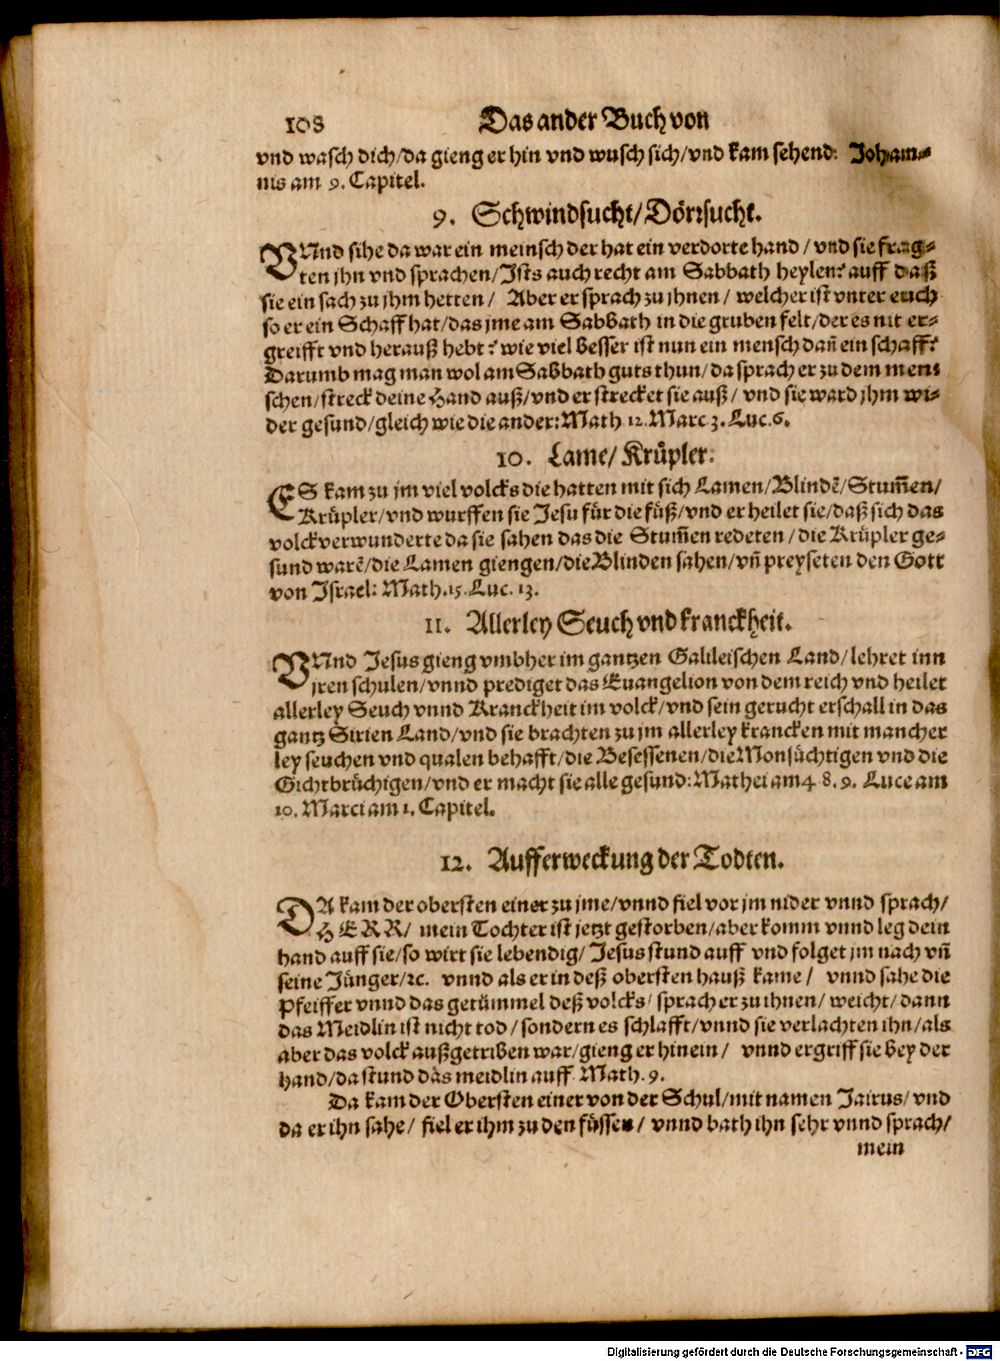 108 Das ander Buch von
vnd wasch dich/da gieng er hin vnd wusch sich/vnd kam sehend: Johan-
nis am 9. Capitel.
9. Schwindsucht/Dörrsucht.
VNnd sihe da war ein meinsch der hat ein verdorte hand/vnd sie frag-
ten jhn vnd sprachen/Ists auch recht am Sabbath heylen? auff daß
sie ein sach zu jhm hetten/ Aber er sprach zu jhnen/ welcher ist vnter euch
so er ein Schaff hat/das jme am Sabbath in die gruben felt/der es nit er-
greifft vnd herauß hebt? wie viel besser ist nun ein mensch dañ ein schaff?
Darumb mag man wol am Sabbath guts thun/da sprach er zu dem men-
schen/streck deine Hand auß/vnd er strecket sie auß/ vnd sie ward jhm wi-
der gesund/gleich wie die ander: Math 12. Marc 3. Luc. 6.
10. Lame/ Krüpler.
ES kam zu jm viel volcks die hatten mit sich Lamen/Blindē/Stum̄en/
Krüpler/vnd wurffen sie Jesu für die füß/vnd er heilet sie/daß sich das
volck verwunderte da sie sahen das die Stum̄en redeten/die Krüpler ge-
sund warē/die Lamen giengen/die Blinden sahen/vñ preyseten den Gott
von Israel: Math. 15. Luc. 13.
11. Allerley Seuch vnd kranckheit.
VNnd Jesus gieng vmbher im gantzen Galileischen Land/lehret inn
jren schulen/vnnd prediget das Euangelion von dem reich vnd heilet
allerley Seuch vnnd Kranckheit im volck/vnd sein gerucht erschall in das
gantz Sirien Land/vnd sie brachten zu jm allerley krancken mit mancher
ley seuchen vnd qualen behafft/die Besessenen/die Monsüchtigen vnd die
Gichtbrüchigen/vnd er macht sie alle gesund: Mathei am 4. 8. 9. Luce am
10. Marci am 1. Capitel.
12. Aufferweckung der Todten.
DA kam der obersten einer zu jme/vnnd fiel vor jm nider vnnd sprach/
HERR/ mein Tochter ist jetzt gestorben/aber komm vnnd leg dein
hand auff sie/so wirt sie lebendig/ Jesus stund auff vnd folget jm nach vñ
seine Jünger/ꝛc. vnnd als er in deß obersten hauß kame/ vnnd sahe die
Pfeiffer vnnd das getümmel deß volcks/ sprach er zu ihnen/ weicht/dann
das Meidlin ist nicht tod/sondern es schlafft/vnnd sie verlachten ihn/als
aber das volck außgetriben war/gieng er hinein/ vnnd ergriff sie bey der
hand/da stund das meidlin auff. Math. 9.
Da kam der Obersten einer von der Schul/mit namen Jairus/vnd
da er ihn sahe/ fiel er ihm zu den füssen/ vnnd bath ihn sehr vnnd sprach/
mein
Digitalisierung gefördert durch die Deutsche Forschungsgemeinschaft - DFG